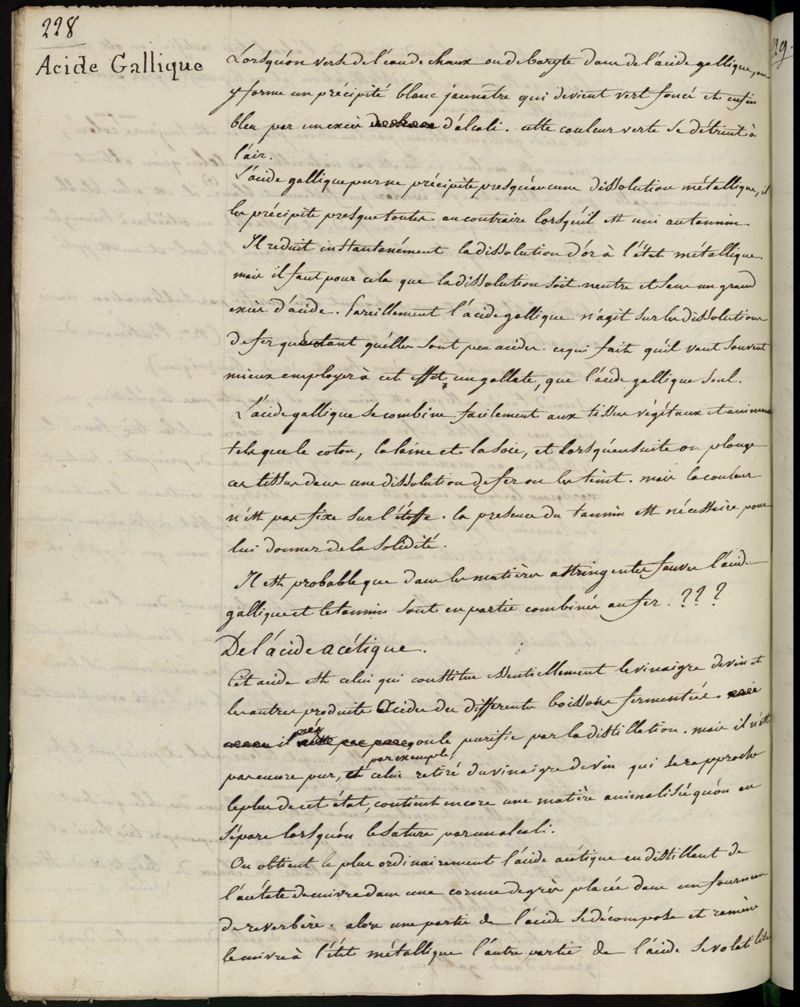 228
Acide Gallique
Lorsqu'on verse de l'eau de chaux ou de baryte dans de l'acide gallique, on
y forme un précipité blanc jaunâtre qui devient vert foncé et enfin
bleu par un excès d'alcali. cette couleur verte se détruit à
l'air.
L'acide gallique pur ne précipite presqu'aucune dissolution métallique, il
les précipite presque toutes au contraire lorsqu'il est uni au tannin
Il reduit instantanément la dissolution d'or à l'état métallique.
mais il faut pour cela que la dissolution soit neutre et sans un grand
excès d'acide. Pareillement l'acide gallique n'agit sur les dissolutions
de fer qu'autant qu'elles sont peu acides. ce qui fait qu'il vaut souvent
mieux employer à cet effet un gallate, que l'acide gallique seul.
L'acide gallique se combine facilement aux tissus végétaux et animaux
tels que le coton, la laine et la soie, et lorsqu'ensuite on plonge
ces tissus dans une dissolution de fer on les teint. mais la couleur
n'est pas fixe sur l'étoffe. la presence du tannin est nécessaire pour
lui donner de la solidité.
Il est probable que dans les matières astringentes fauves l'acide
gallique et le tannin sont en partie combinés au fer. ???
De l'acide acétique.
Cet acide est celui qui constitue essentiellement le vinaigre de vin et
les autres produits acides des differentes boissons fermentées.
il on le purifie par la distillation. mais il n'est
pas encore pur, et celui par exemple, retiré du vinaigre de vin qui se rapproche
le plus de cet état, contient encore une matière animalisée qu'on en
sépare lorsqu'on le sature par un alcali.
On obtient le plus ordinairement l'acide acétique en distillant de
l'acétate de cuivre dans une cornue de grès placée dans un fourneau
de reverbère. alors une partie de l'acide se décompose et ramène
le cuivre à l'état métallique l'autre partie de l'acide se volatilise